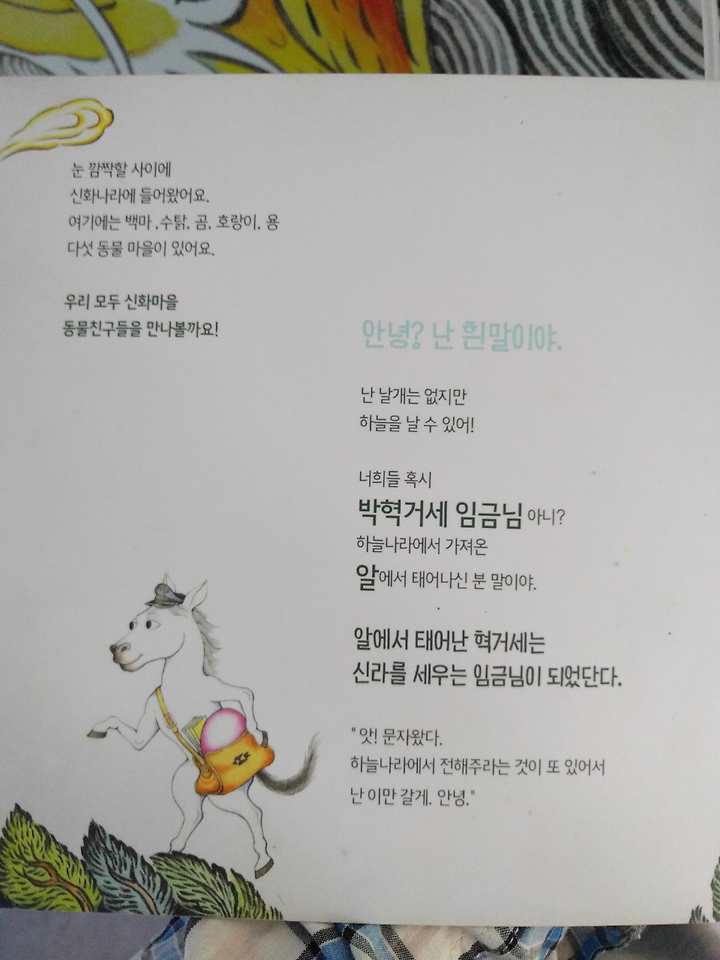 눈 깜짝할 사이에
신화나라에 들어왔어요.
여기에는 백마 ,수탉, 곰, 호랑이, 용
다섯 동물 마을이 있어요.
우리 모두 신화마을
동물친구들을 만나볼까요!
안녕? 난 흰말이야.
난 날개는 없지만
하늘을 날 수 있어!
너희들 혹시
박혁거세 임금님 아니?
하늘나라에서 가져온
알에서 태어나신 분 말이야.
알에서 태어난 혁거세는
신라를 세우는 임금님이 되었단다.
"앗! 문자왔다.
하늘나라에서 전해주라는 것이 또 있어서
난 이만 갈게. 안녕."